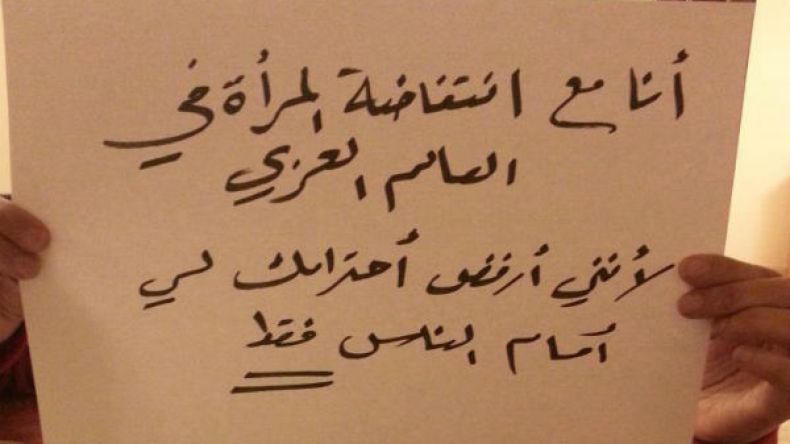 أنا مع انتفاضة المرأة في
العالم العربي
لأنني أرفض أحترامك لي
أمام الناس فقط